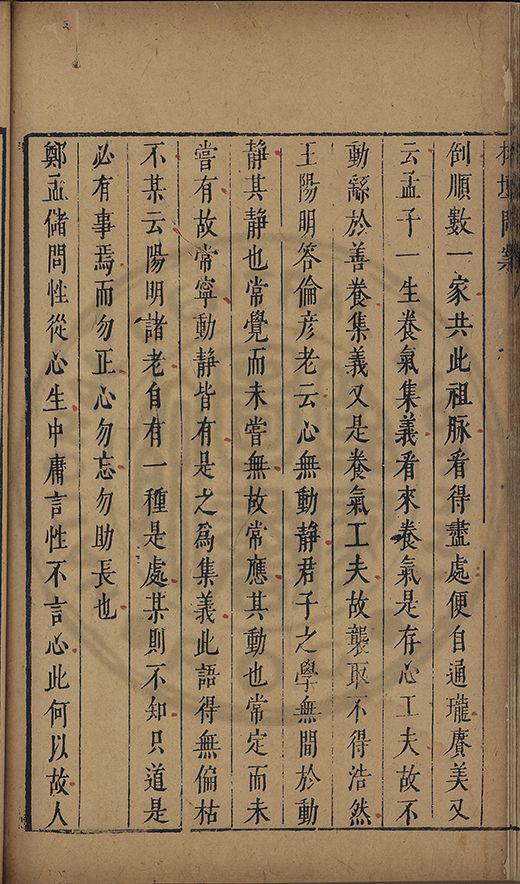 榕壇問業
倒順數一家共此祖脉看得盡處便自通瓏賡美又
云孟子一生養氣集義看來養氣是存心工夫故不
動繇於善養集義又是養氣工夫故襲取不得浩然
王陽明答倫彦老云心無動靜君子之學無間於動
靜其靜也常覺而未嘗無故常應其動也常定而未
嘗有故常寧動靜皆有是之爲集義此語得無偏枯
不某云陽明諸老自有一種是處某則不知只道是
必有事焉而勿正心勿忘勿助長也
鄭孟儲問性從心生中庸言性不言心此何以故人